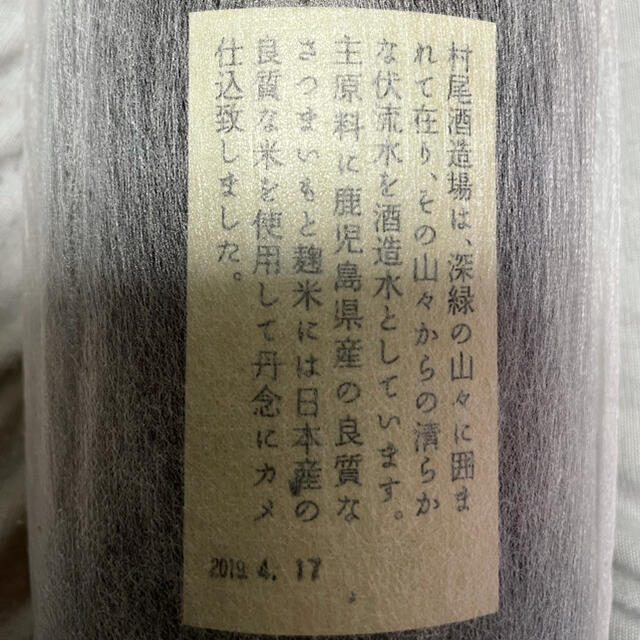 村尾酒造場は、深緑の山々に囲ま
れて在り、その山々からの清らか
な伏流水を酒造水としています。
主原料に鹿児島県産の良質な
さつまいもと麹米には日本産の
良質な米を使用して丹念にカメ
仕込致しました。
2019. 4. 17